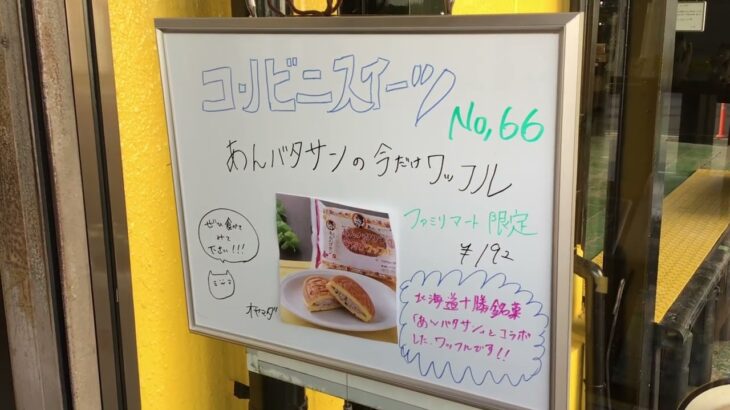 コンビニスイーツ
No,66
あんバタサンの今だけワッフル
ファミリマート 限定
¥192
ぜひ食べて
みて
下さい!!!
オヤマダ
北海道十勝銘菓
「あんバタサン」とコラボ
した、ワッフルです!!